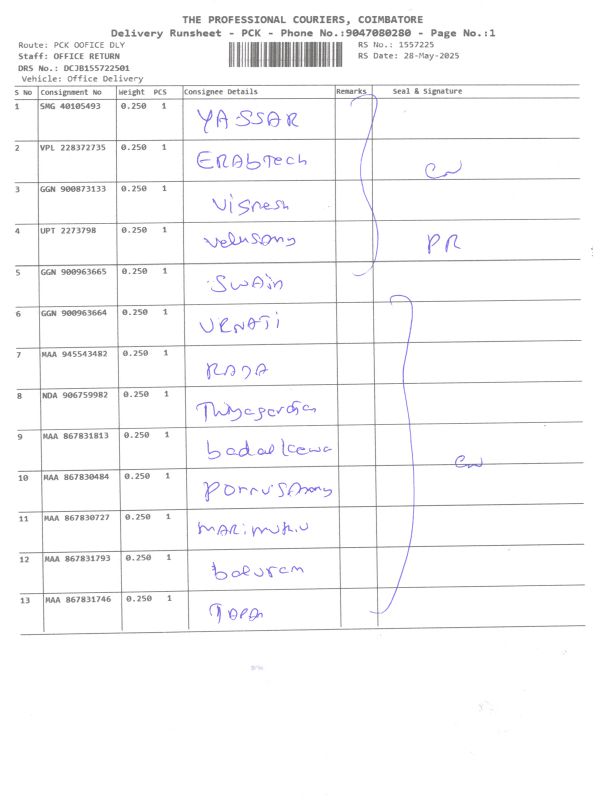 THE PROFESSIONAL COURIERS, COIMBATORE
Delivery Runsheet - PCK - Phone No.:9047080280 - Page No.:1
Route: PCK OOFICE DLY RS No.: 1557225
Staff: OFFICE RETURN RS Date: 28-May-2025
DRS No.: DCJB155722501
Vehicle: Office Delivery
S No Consignment No Weight PCS Consignee Details Remarks Seal & Signature
1 SMG 40105493 0.250 1 YASSAR
2 VPL 228372735 0.250 1 ERAbTech
3 GGN 900873133 0.250 1 Vignesh
4 UPT 2273798 0.250 1 Velusamy PR
5 GGN 900963665 0.250 1 SWAin
6 GGN 900963664 0.250 1 VRNATi
7 MAA 945543482 0.250 1 RAJA
8 NDA 906759982 0.250 1
9 MAA 867831813 0.250 1
10 MAA 867830484 0.250 1 PonnuSAmy
11 MAA 867830727 0.250 1
12 MAA 867831793 0.250 1 baluram
13 MAA 867831746 0.250 1 TAPAn